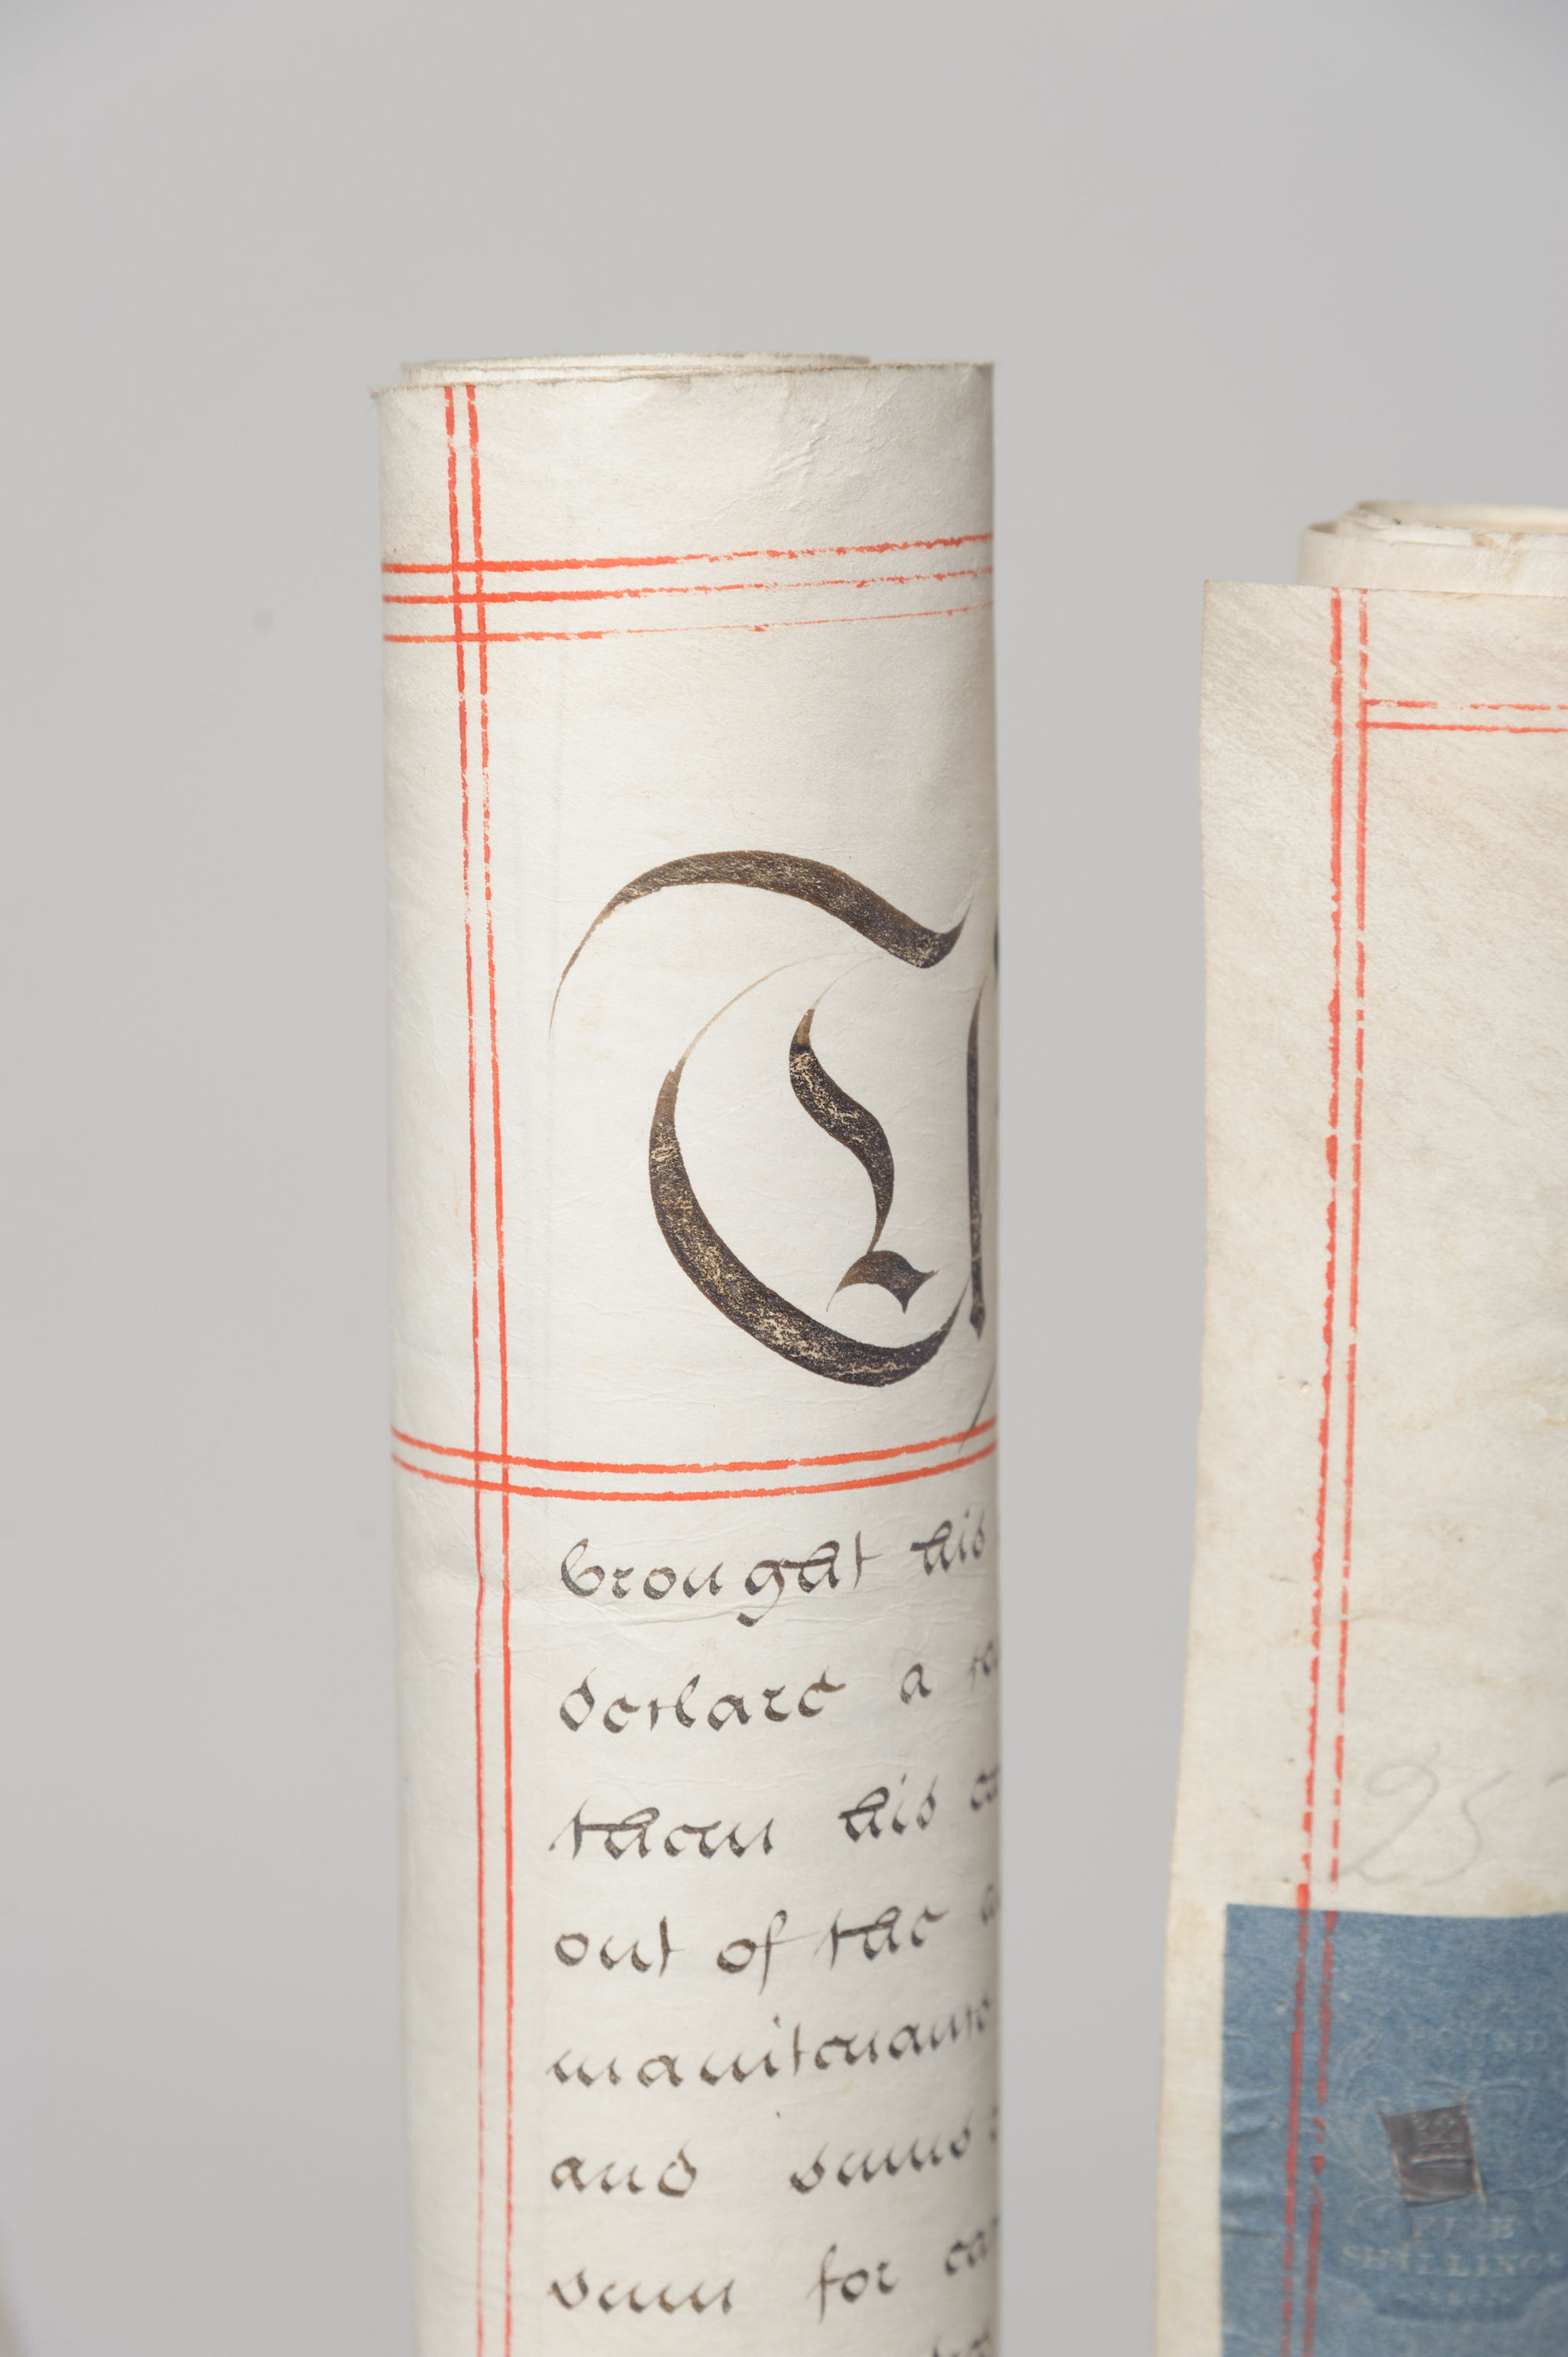 T
brought his
declare a
them his
out of the
and sums
sum for
25
POUND
FIVE
SHILLINGS